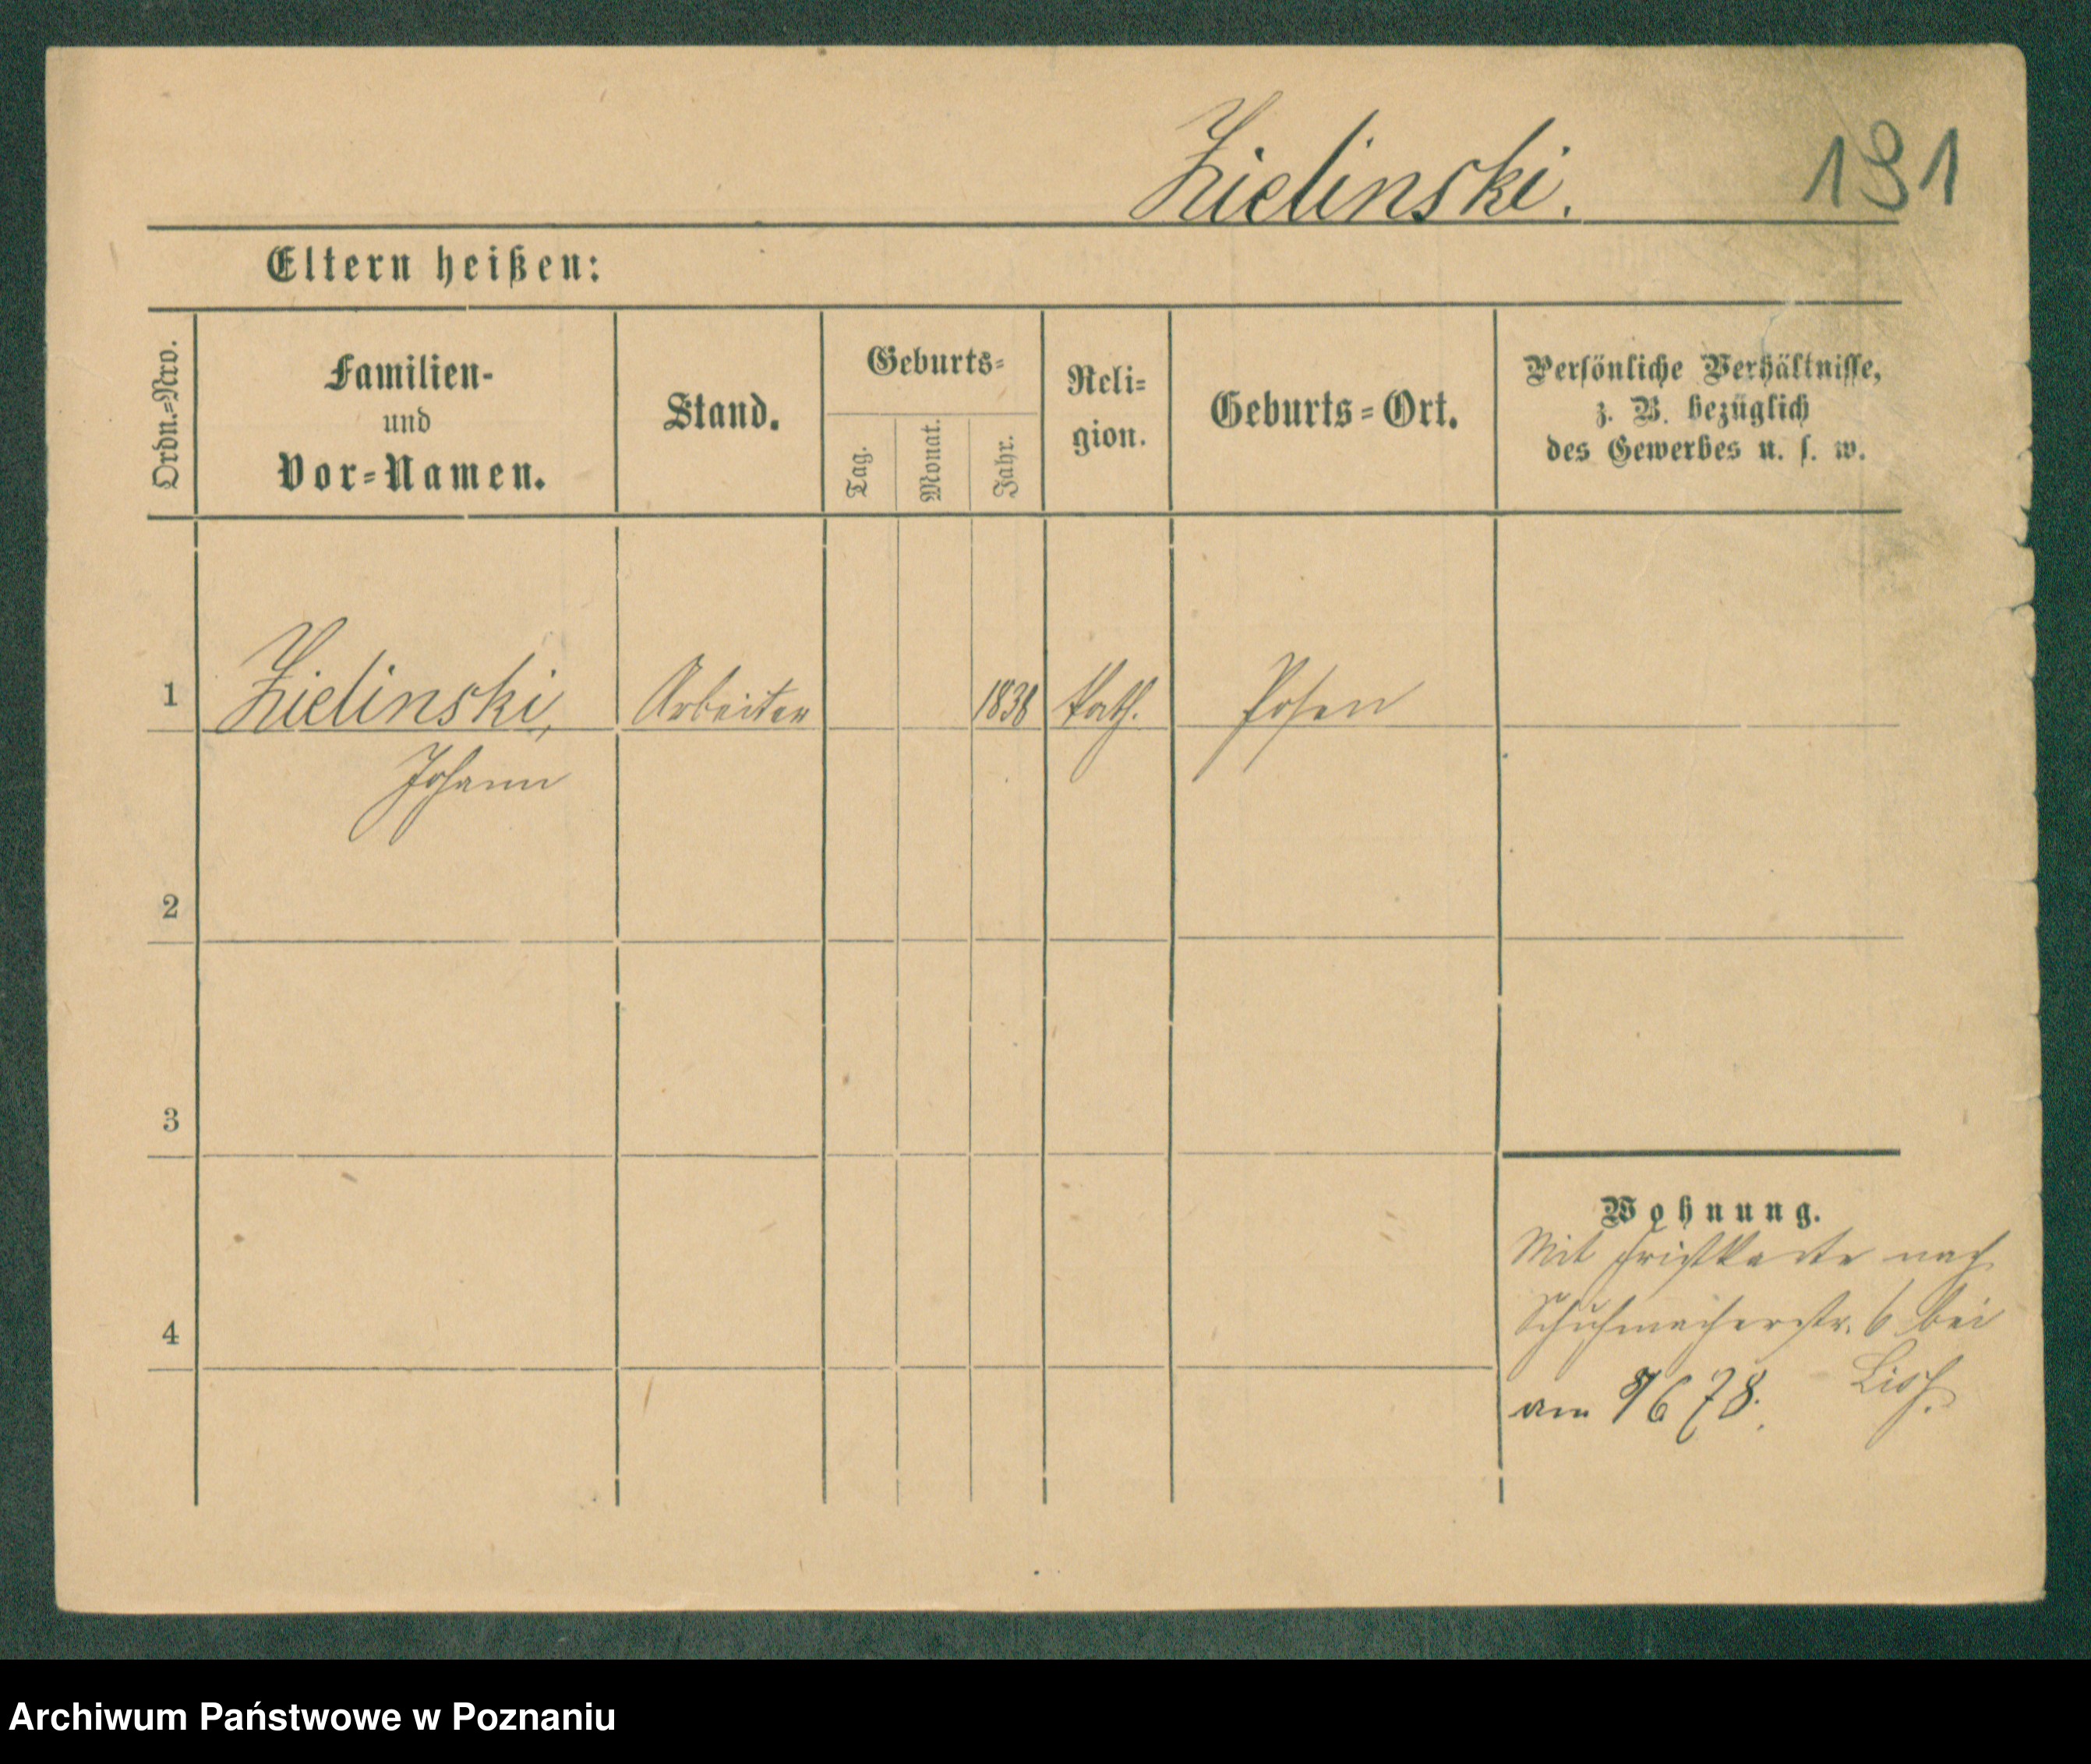 Zielinski.
191
Eltern heißen:
Ordn.=Nro.
Familien-
und
Vor=Namen.
Stand.
Geburts=
Tag.
Monat.
Jahr.
Reli=
gion.
Geburts=Ort.
Persönliche Verhältnisse,
z. B. bezüglich
des Gewerbes u. s. w.
1 Zielinski, Arbeiter 1838 kath. Posen
Johann
2
3
4
Wohnung.
Mit nach
Schuhmacherstr. 6 bei
am 9/6 78.
Archiwum Państwowe w Poznaniu